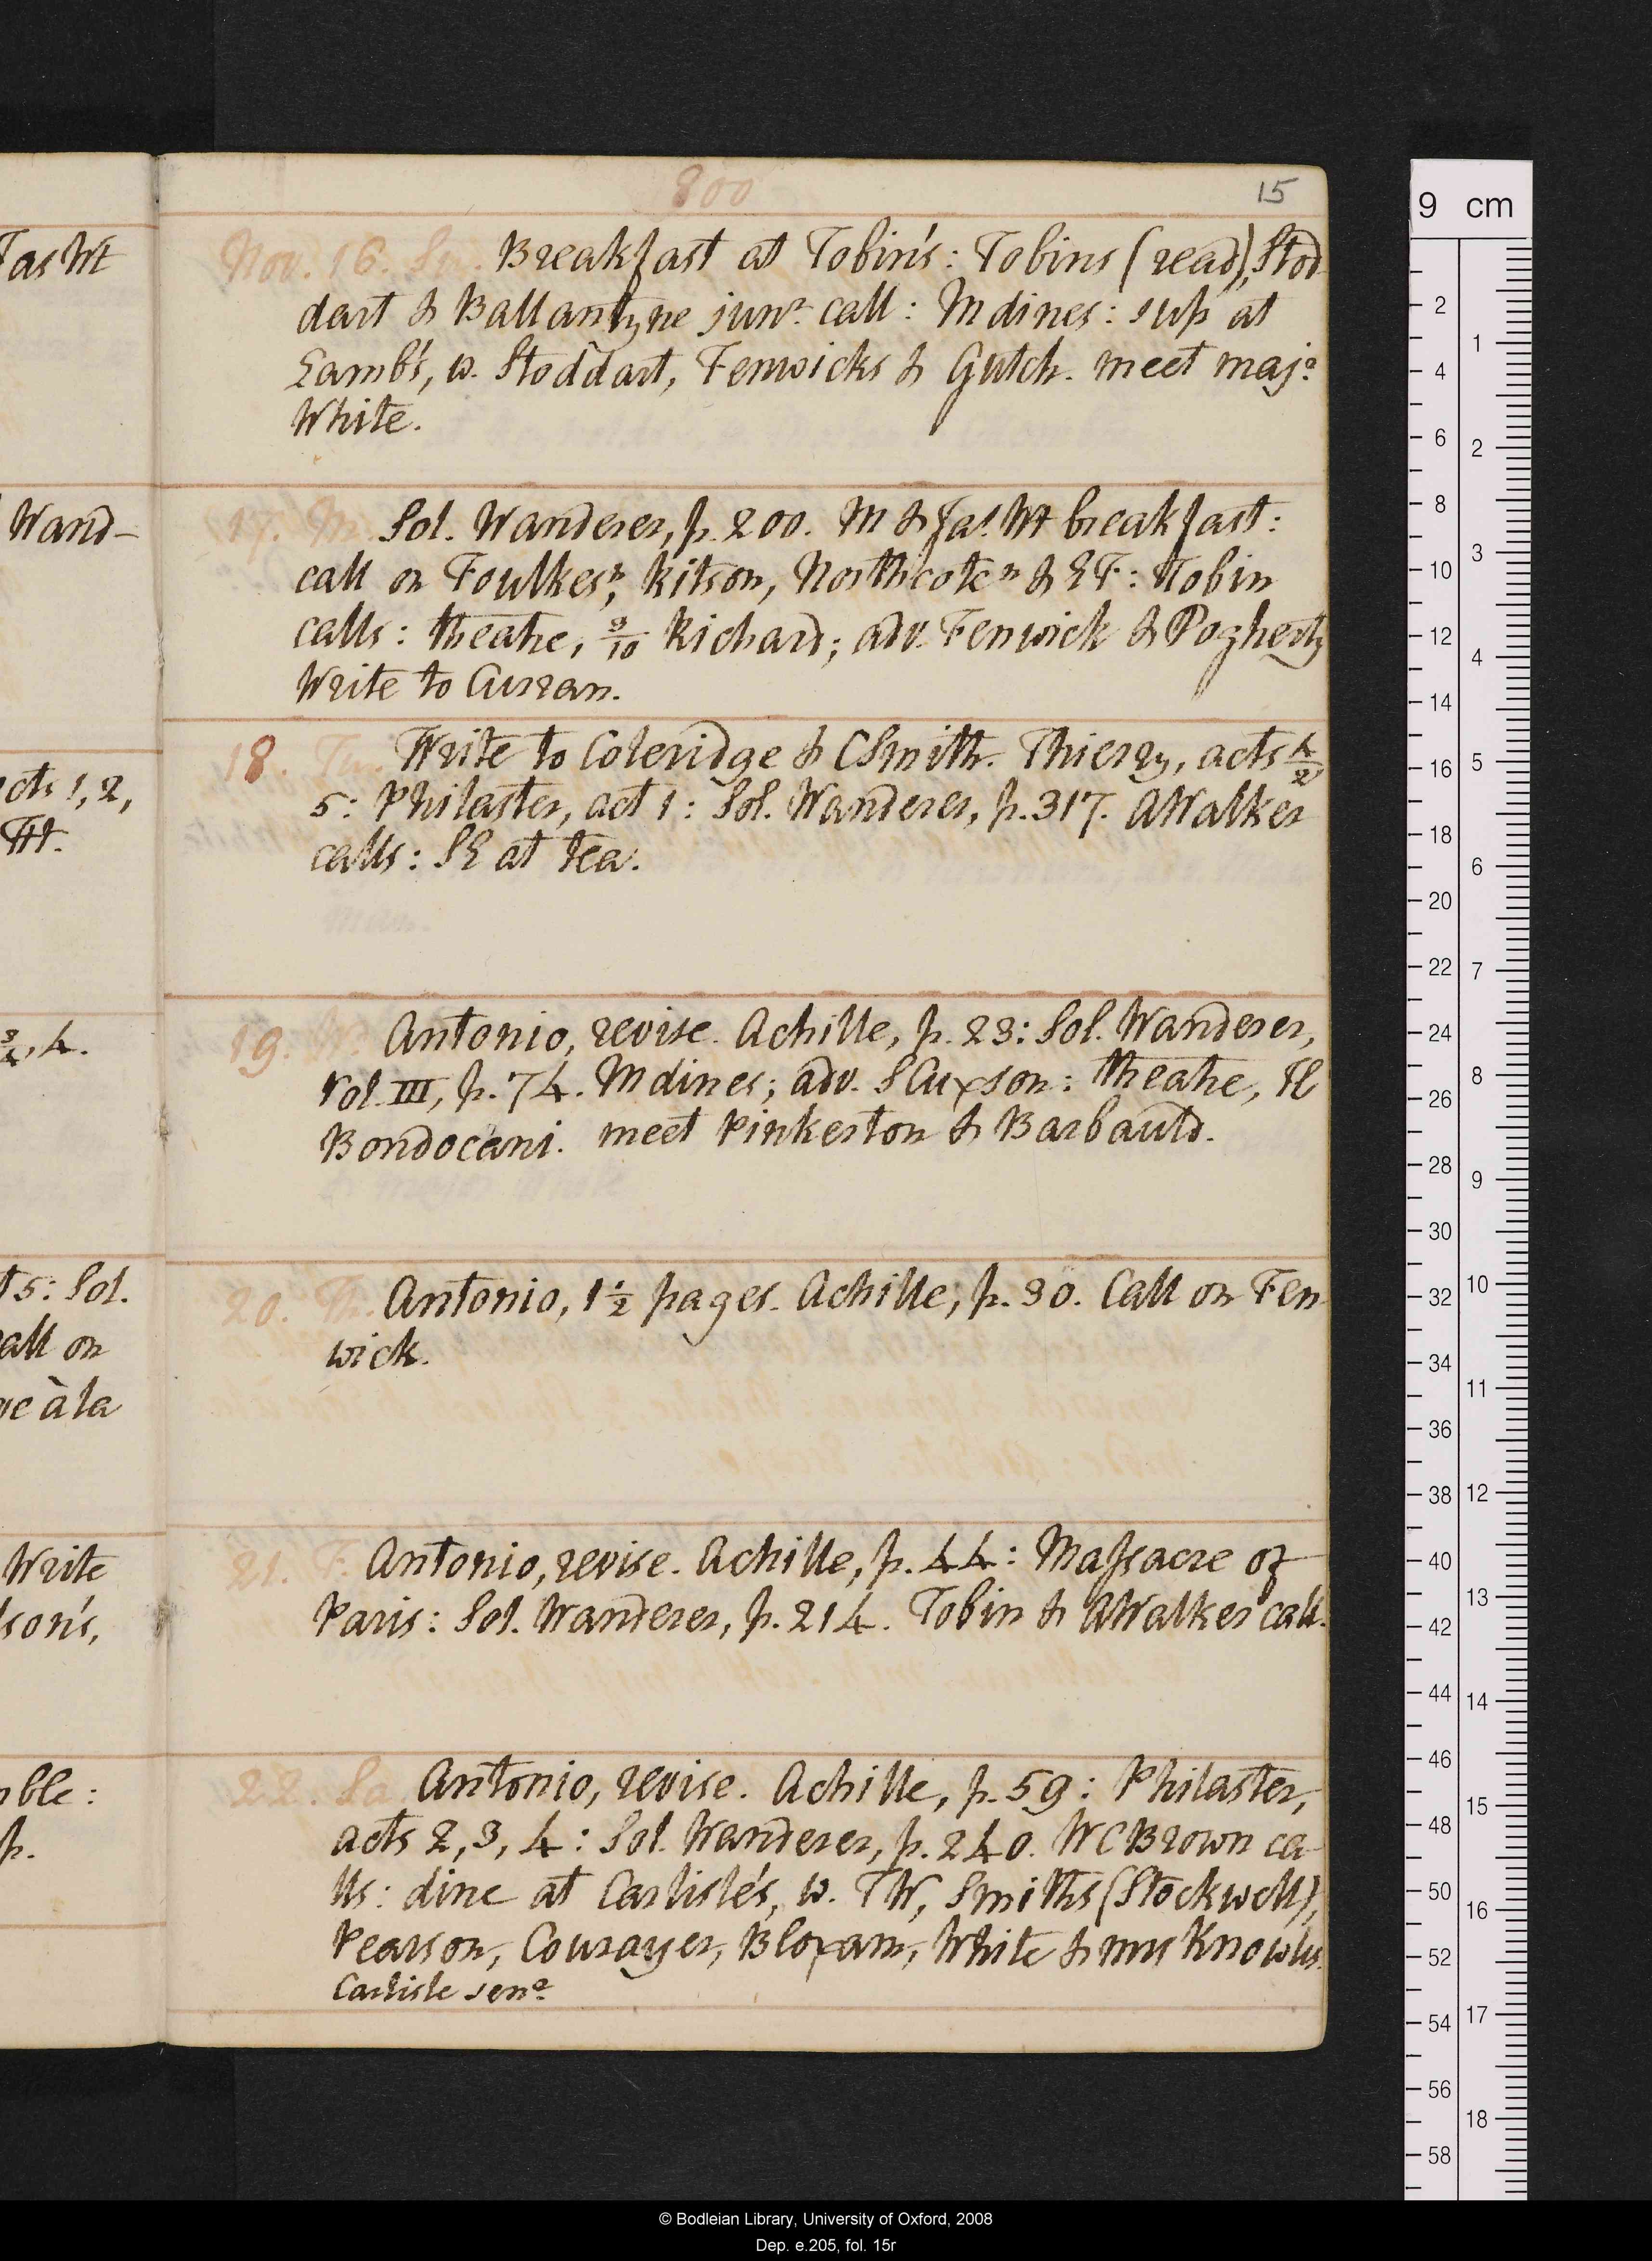 800
15
Nov. 16. Su. Breakfast at Tobin's: Tobins (read), Stod
dart & Ballantyne junr. call: M dines: sup at
Lamb's, w. Stoddart, Fenwicks & Gutch. meet majr
White.
17. M. Sol. Wanderer, p. 200. M & Jas Wt breakfast:
call on Foulkes n, Ritson, Northcote n & EF: Tobin
calls: theatre, 9/10 Richard; adv. Fenwick & Dogherty
Write to Curran.
18. Tu. Write to Coleridge & CSmith. Thierry, acts 4/2,
5: Philaster, act 1: Sol. Wanderer, p. 317. AWalker
calls: SE at tea.
19. W. Antonio, revise. Achille, p. 23: Sol. Wanderer,
Vol III, p. 74. M dines; adv. SCuxson: theatre, Il
Bondocani. meet Pinkerton & Barbauld.
20. Th. Antonio, 1 1/2 pages. Achille, p. 30. Call on Fen
wick.
21. F. Antonio, revise. Achille, p. 44: Massacre of
Paris: Sol. Wanderer, p. 214. Tobin & AWalker call.
22. Sa Antonio, revise. Achille, p. 59: Philaster,
acts 2, 3, 4: Sol. Wanderer, p. 240. WCBrown ca-
lls: dine at Carlisle's, w. TW, Smiths (Stockwell),
Pearson, Courayer, Bloxam, White & mrs Knowles.
Carlisle senr.
Jas Wt
Wand-
acts 1, 2,
3/4, 4.
t 5: Sol.
call on
à la
Write
son's,
mble:
p.
9 cm
2
4
6
8
10
12
14
16
18
20
22
24
26
28
30
32
34
36
38
40
42
44
46
48
50
52
54
56
58
1
2
3
4
5
6
7
8
9
10
11
12
13
14
15
16
17
18
© Bodleian Library, University of Oxford, 2008
Dep. e.205, fol. 15r